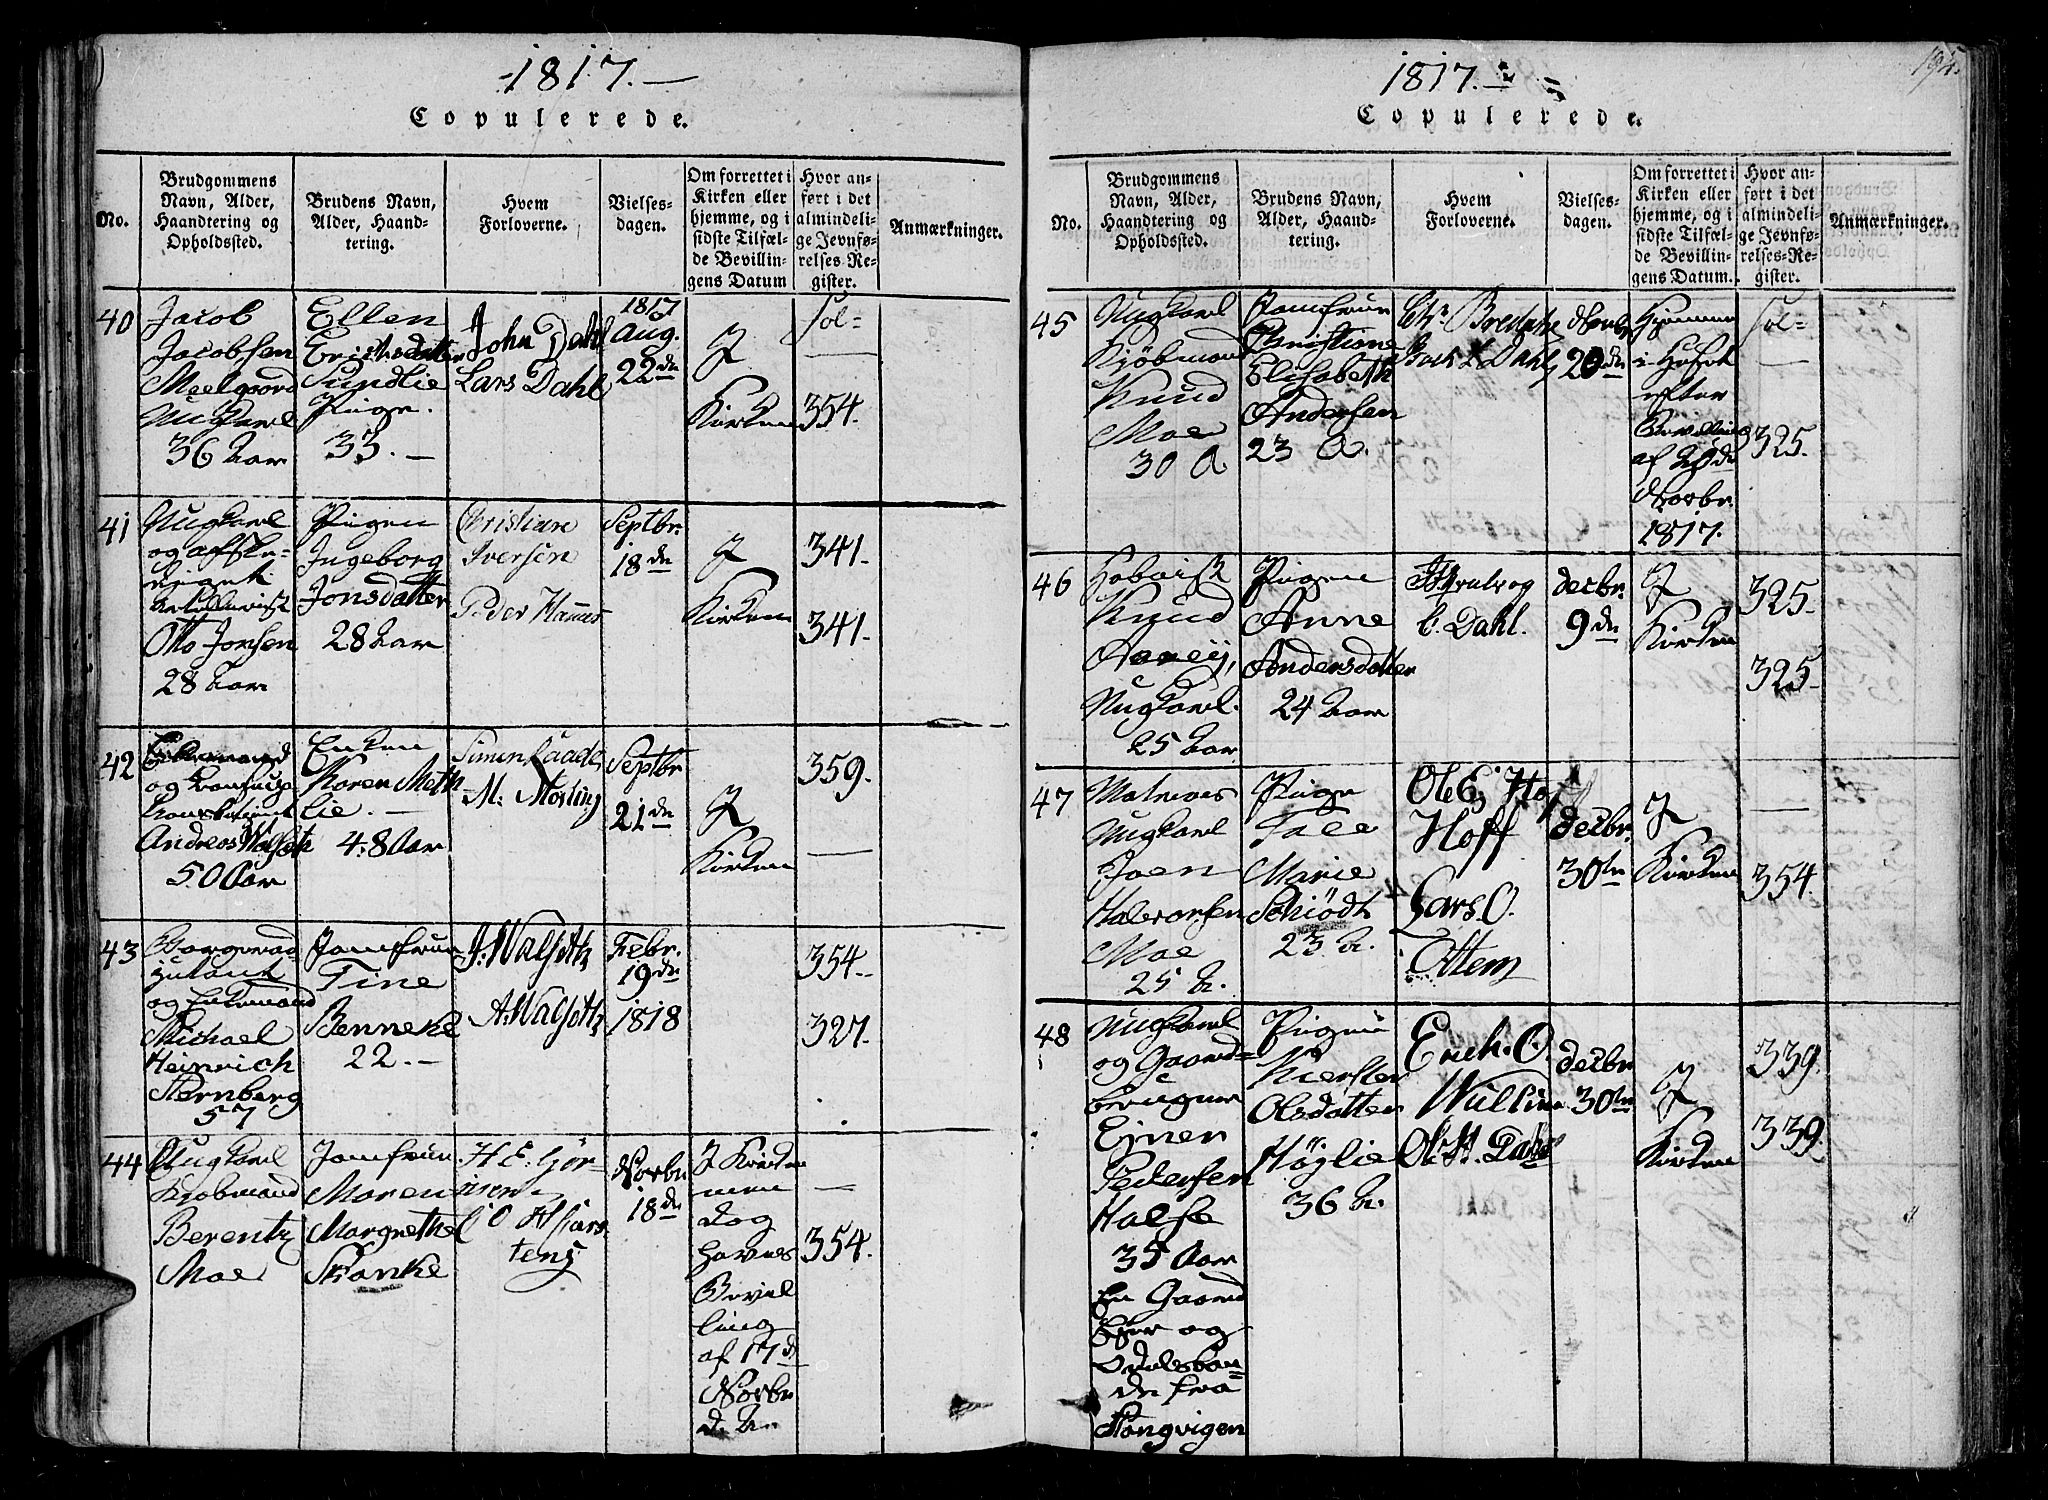 -1817.-
Copulerede.
No.
Brudgommens
Navn, Alder,
Haandtering og
Opholdssted.
Brudens Navn,
Alder, Haand-
tering.
Hvem
Forloverne.
Vielses-
dagen.
Om forrettet i
Kirken eller
hjemme, og i
sidste Tilfæl-
de Bevillin-
gens Datum
Hvor an-
ført i det
almindeli-
ge Jevnfø-
relses-Re-
gister.
Anmærkninger.
40
Jacob
Jacobsen
Meelgaard
Ungkarl
36 Aar
Ellen
Erichsdatter
Sundlie
Pige.
33.-
John Dahl
Lars Dahl
1817
Aug.
22de
I
Kirken
fol-
354.
41
Ungkarl
og afske-
diget
Otto Jonsen
28 Aar
Pigen
Ingeborg
Jonsdatter
28 Aar
Christian
Iversen
Peder Hammer
Septbr.
18de
I
Kirken
341.
341.
42
Enkemand
og
Andreas Walseth
50 Aar
Enken
Karen Meth
lie.-
48 Aar
Simen
M:
Septbr
21de
I
Kirken
359.
43
og Enkemand
Michael
Heinrich
Sternberg
57
Jomfrue
Tine
Benneke
22.-
J. Walseth
A. Walseth
Febr.
19de
1818
354.
327.
44
Ungkarl
Kjøbmand
Berentz
Moe
Jomfrue
Maren
Margrethe
Skanke
H. E: Gør-
Novbr
18de
I Kirken
men
dog
Bevil
ling
af 17de
Novbr
d. A.
354.
194.
1817.
Copulerede.
No.
Brudgommens
Navn, Alder,
Haandtering og
Opholdssted.
Brudens Navn,
Alder, Haand-
tering.
Hvem
Forloverne.
Vielses-
dagen.
Om forrettet i
Kirken eller
hjemme, og i
sidste Tilfæl-
de Bevillin-
gens Datum.
Hvor an-
ført i det
almindeli-
ge Jevnfø-
relses-Re-
gister.
Anmærkninger.
45
Ungkarl
Kjøbmand
Knud
Moe
30 A.
Jomfrue
Christiane
Elisabeth
Andersen
23 A.
Dahl
Novbr
20de
Hjemme
i Huset
efter
Bevilling
af 20de
Novbr.
1817.
fol-
325.
46
Knud
Ungkarl.
25 Aar
Pigen
Anne
Andersdatter
24 Aar
C. Dahl.
decbr.
9de
I
Kirken
325.
325.
47
Matros
Ungkarl
Joen
Halvorsen
Moe
25 A.
Pige
Tale
Marie
Schiødt
23 A.
Hoff
Lars O.
Ottem
decbr.
30te
I
Kirken
354.
48
Ungkarl
og Gaard-
bruger
Ejner
Pedersen
Halse
35 Aar
En Gaard
Ejer og
Odelsbon-
de fra
Stangvigen
Pigen
Kiersten
Olsdatter
Høglie
36 A.
Erich. O.
Wullum
Ole H. Dahl
decbr
30te
I
Kirken
339.
339.